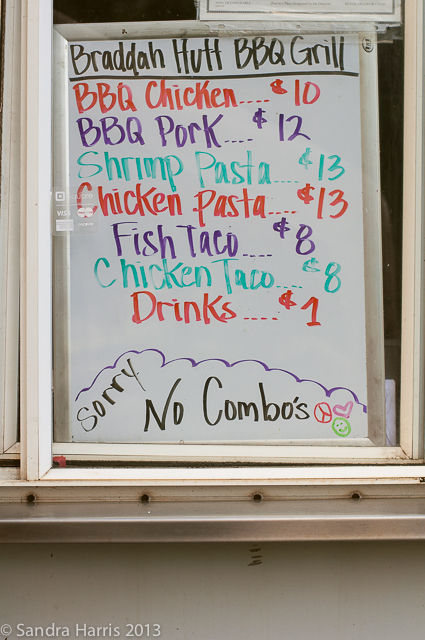 Braddah Hutt BBQ Grill
BBQ Chicken.... $10
BBQ Pork.... $12
Shrimp Pasta.... $13
Chicken Pasta.... $13
Fish Taco.... $8
Chicken Taco.... $8
Drinks..... $1
Sorry No Combo's
VISA
© Sandra Harris 2013